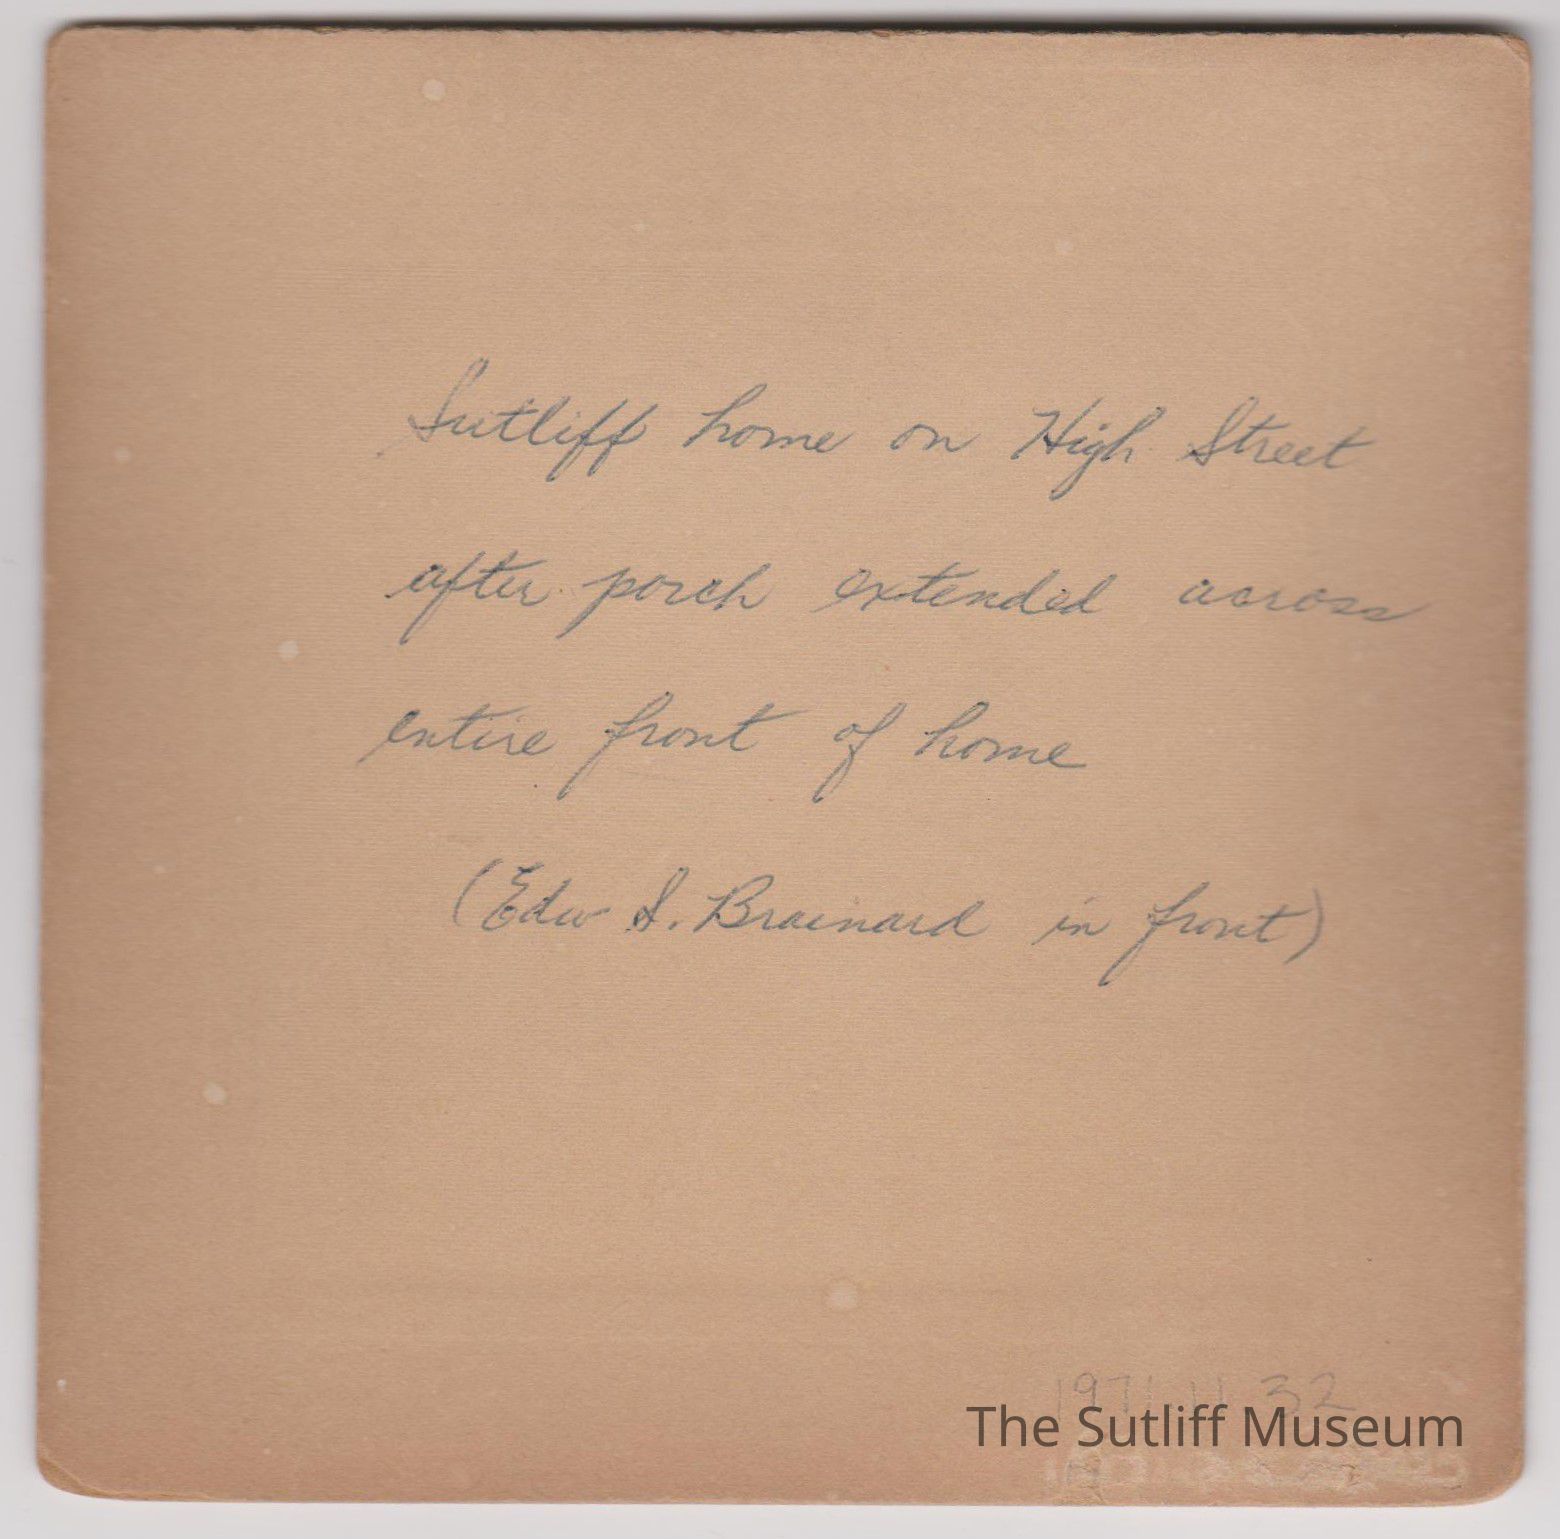 Sutliff home on High Street
after porch extended across
entire front of home
(Edw S. Brainard in front)
1971.11.32
The Sutliff Museum